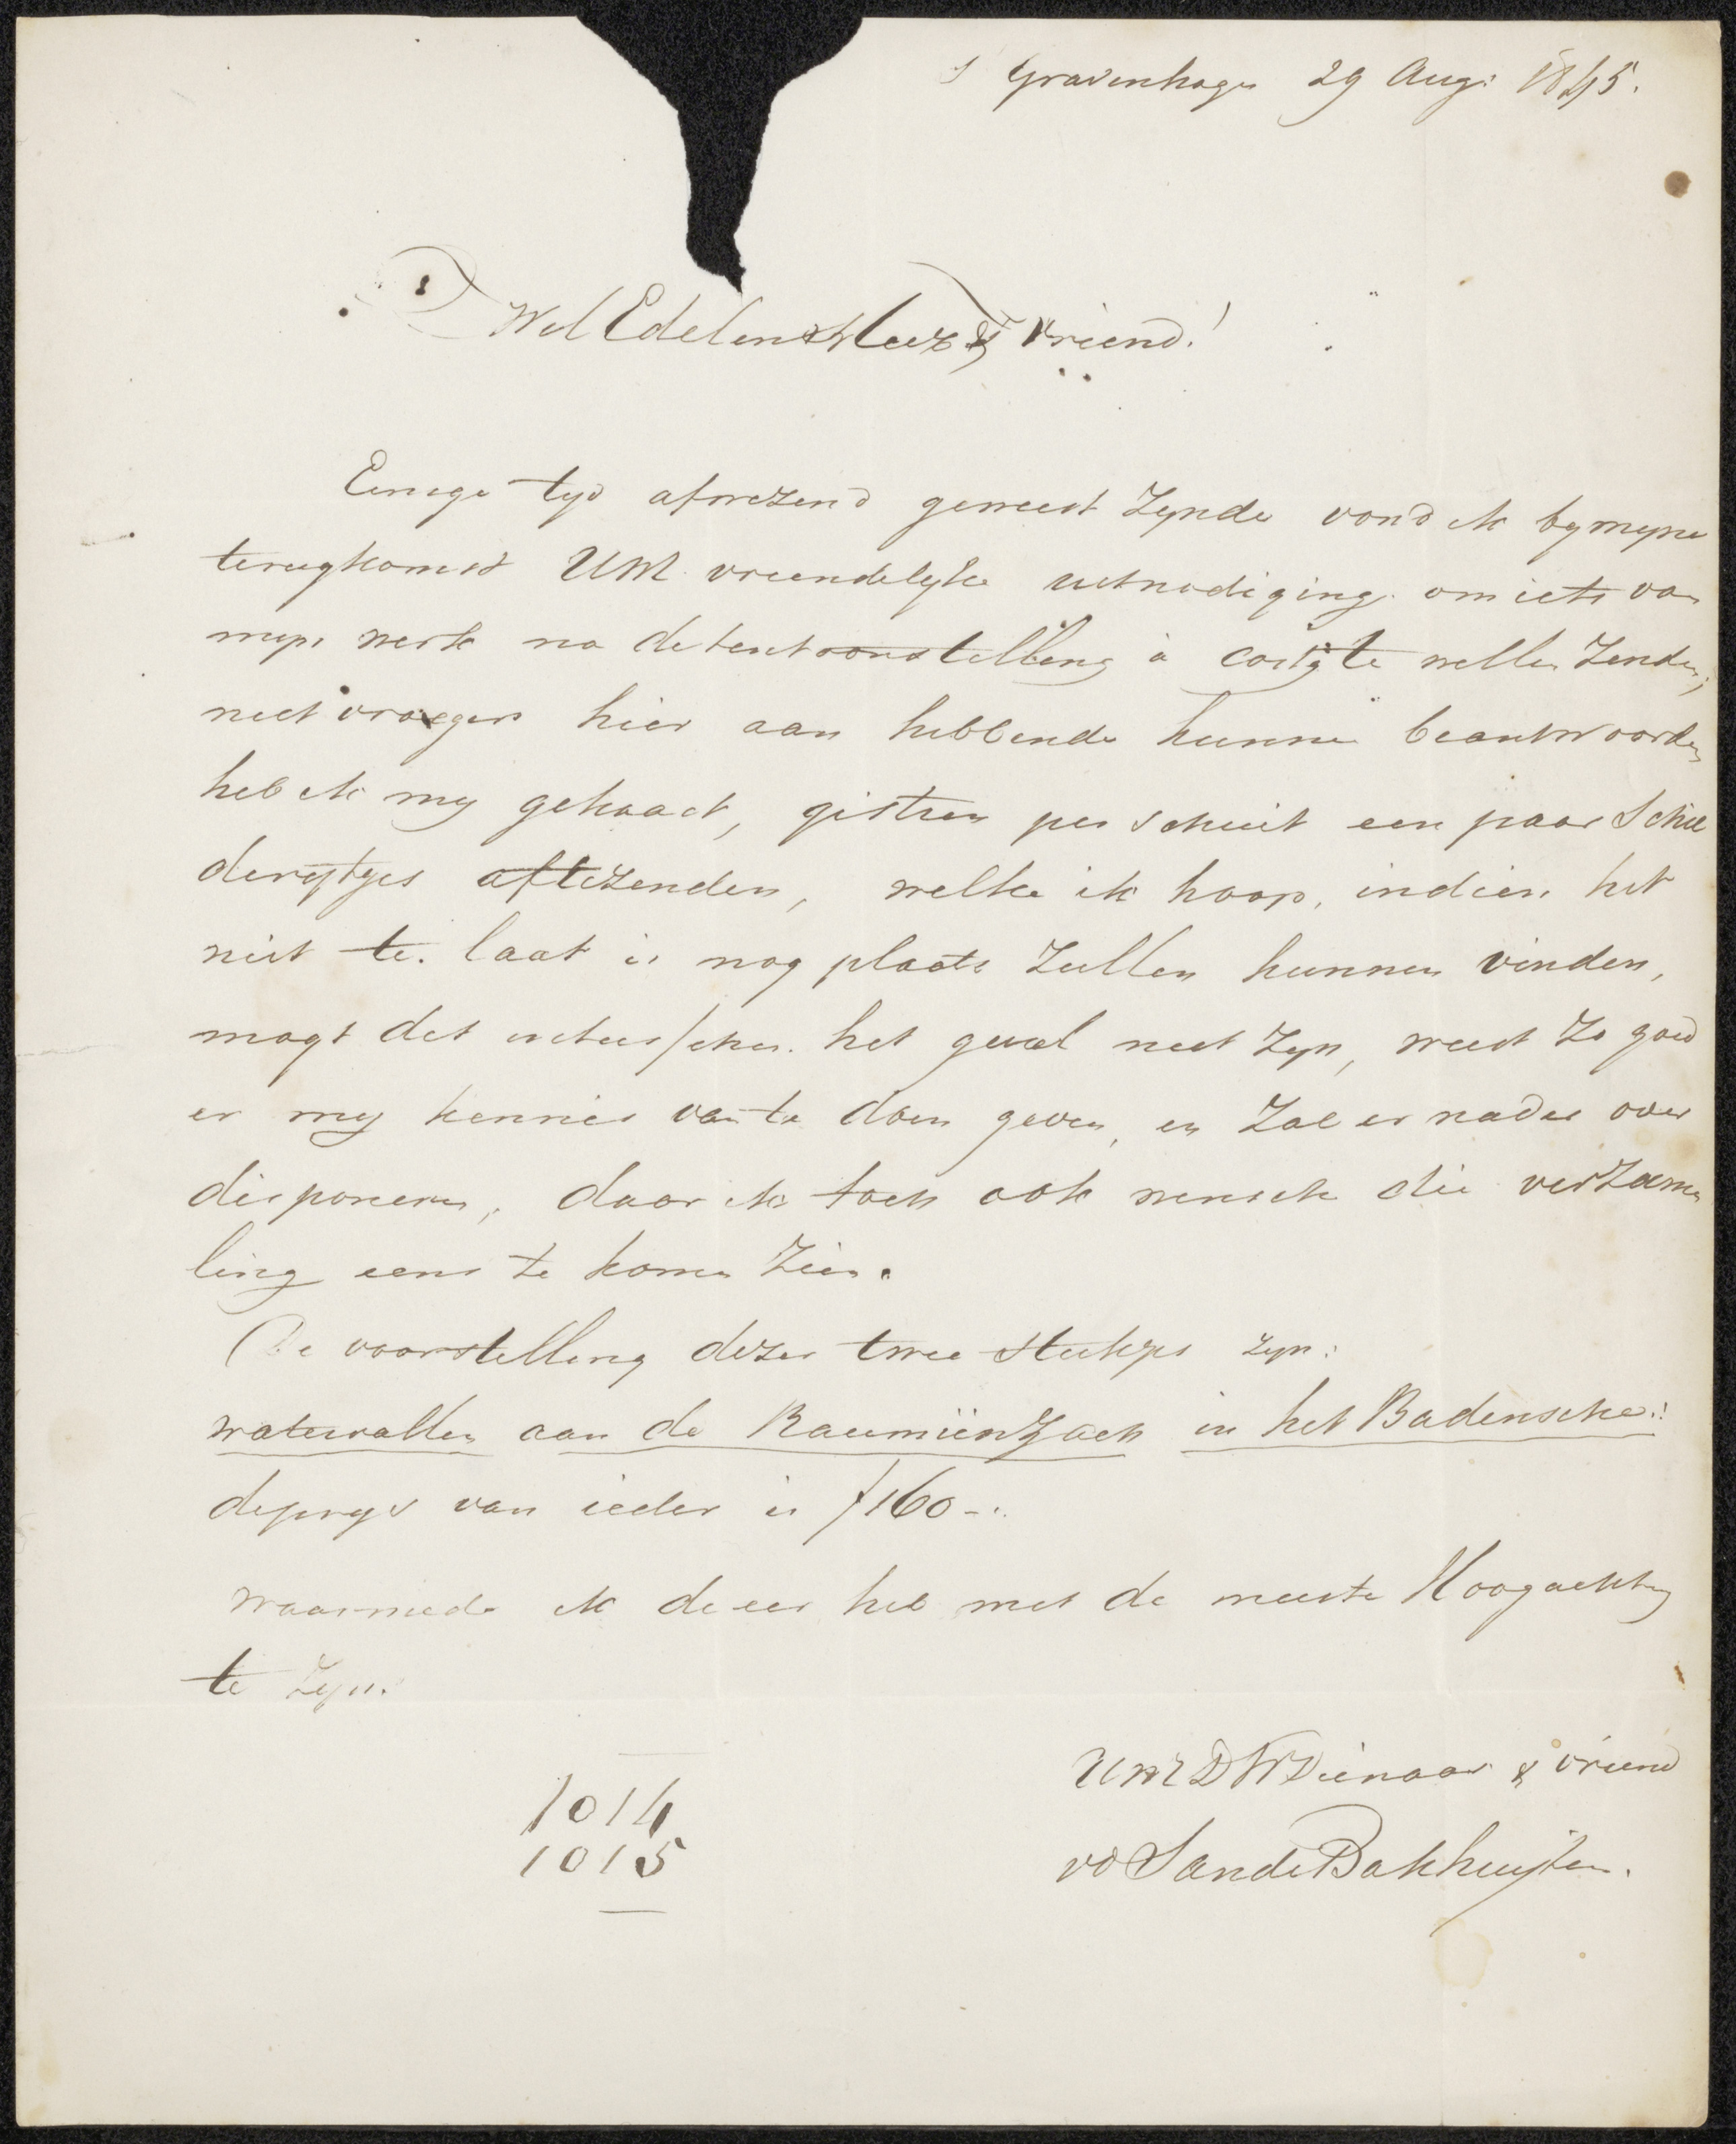 s' Gravenhage 29 Aug: 1845.
Wel Edelen Heer & Vriend!
Eenige tyd afwezend geweest zynde vond ik by myne
terugkomst UWE vriendelyke uitnodiging om iets van
myn werk na de tentoonstelling à te willen zenden;
niet vroeger hier aan hebbende kunnen beantwoorden
heb ik my gehaast, gistren per schuit een paar Schil
derytjes aftezenden, welke ik hoop, indien het
niet te laat is nog plaats zullen kunnen vinden,
mogt dit het geval niet zyn, weest zo goed
er my kennis van te doen geven, en zal er nader over
disponeren, daar ik toch ook wensch die verzame
ling eens te komen zien.
De voorstelling dezer twee stukjes zyn:
watervallen aan de Raumünzach in het Badensche:
de prys van ieder is ƒ160-.
waarmede ik de eer heb met de meeste Hoogachting
te zyn.
UWEDWDienaar & vriend
vd Sande Bakhuyzen.
1014
1015